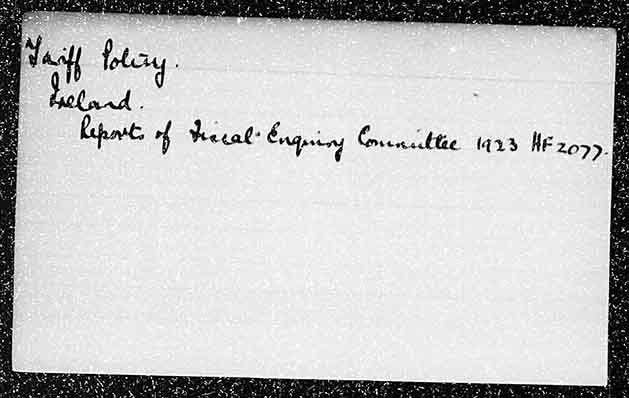 Tariff Policy.
Ireland.
Reports of Fiscal Enquiry Committee 1923 HF2077.